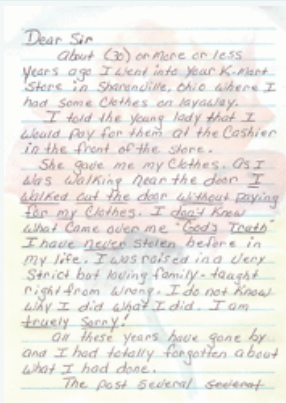 Dear Sir
About (30) or more or less
years ago I went into your K-Mart
Store in Sharonville, Ohio where I
had some Clothes on layaway.
I told the young lady that I
would pay for them at the Cashier
in the front of the store.
She gave me my Clothes. As I
was walking near the door I
walked out the door without paying
for my Clothes. I don't know
what came over me "God's Truth"
I have never stolen before in
my life. I was raised in a very
Strict but loving family - taught
right from wrong. I do not know
why I did what I did. I am
truely sorry!
All these years have gone by
and I had totally forgotten about
what I had done.
The past several several